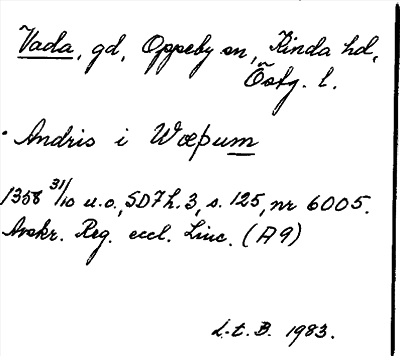 Vada, gd, Oppeby sn, Kinda hd,
Östg. l.
Andris i Wæpum
1358 31/10 u.o., SD7h.3, s. 125, nr 6005.
Avskr. Reg. eccl. Linc. (A9)
L.t.B. 1983.